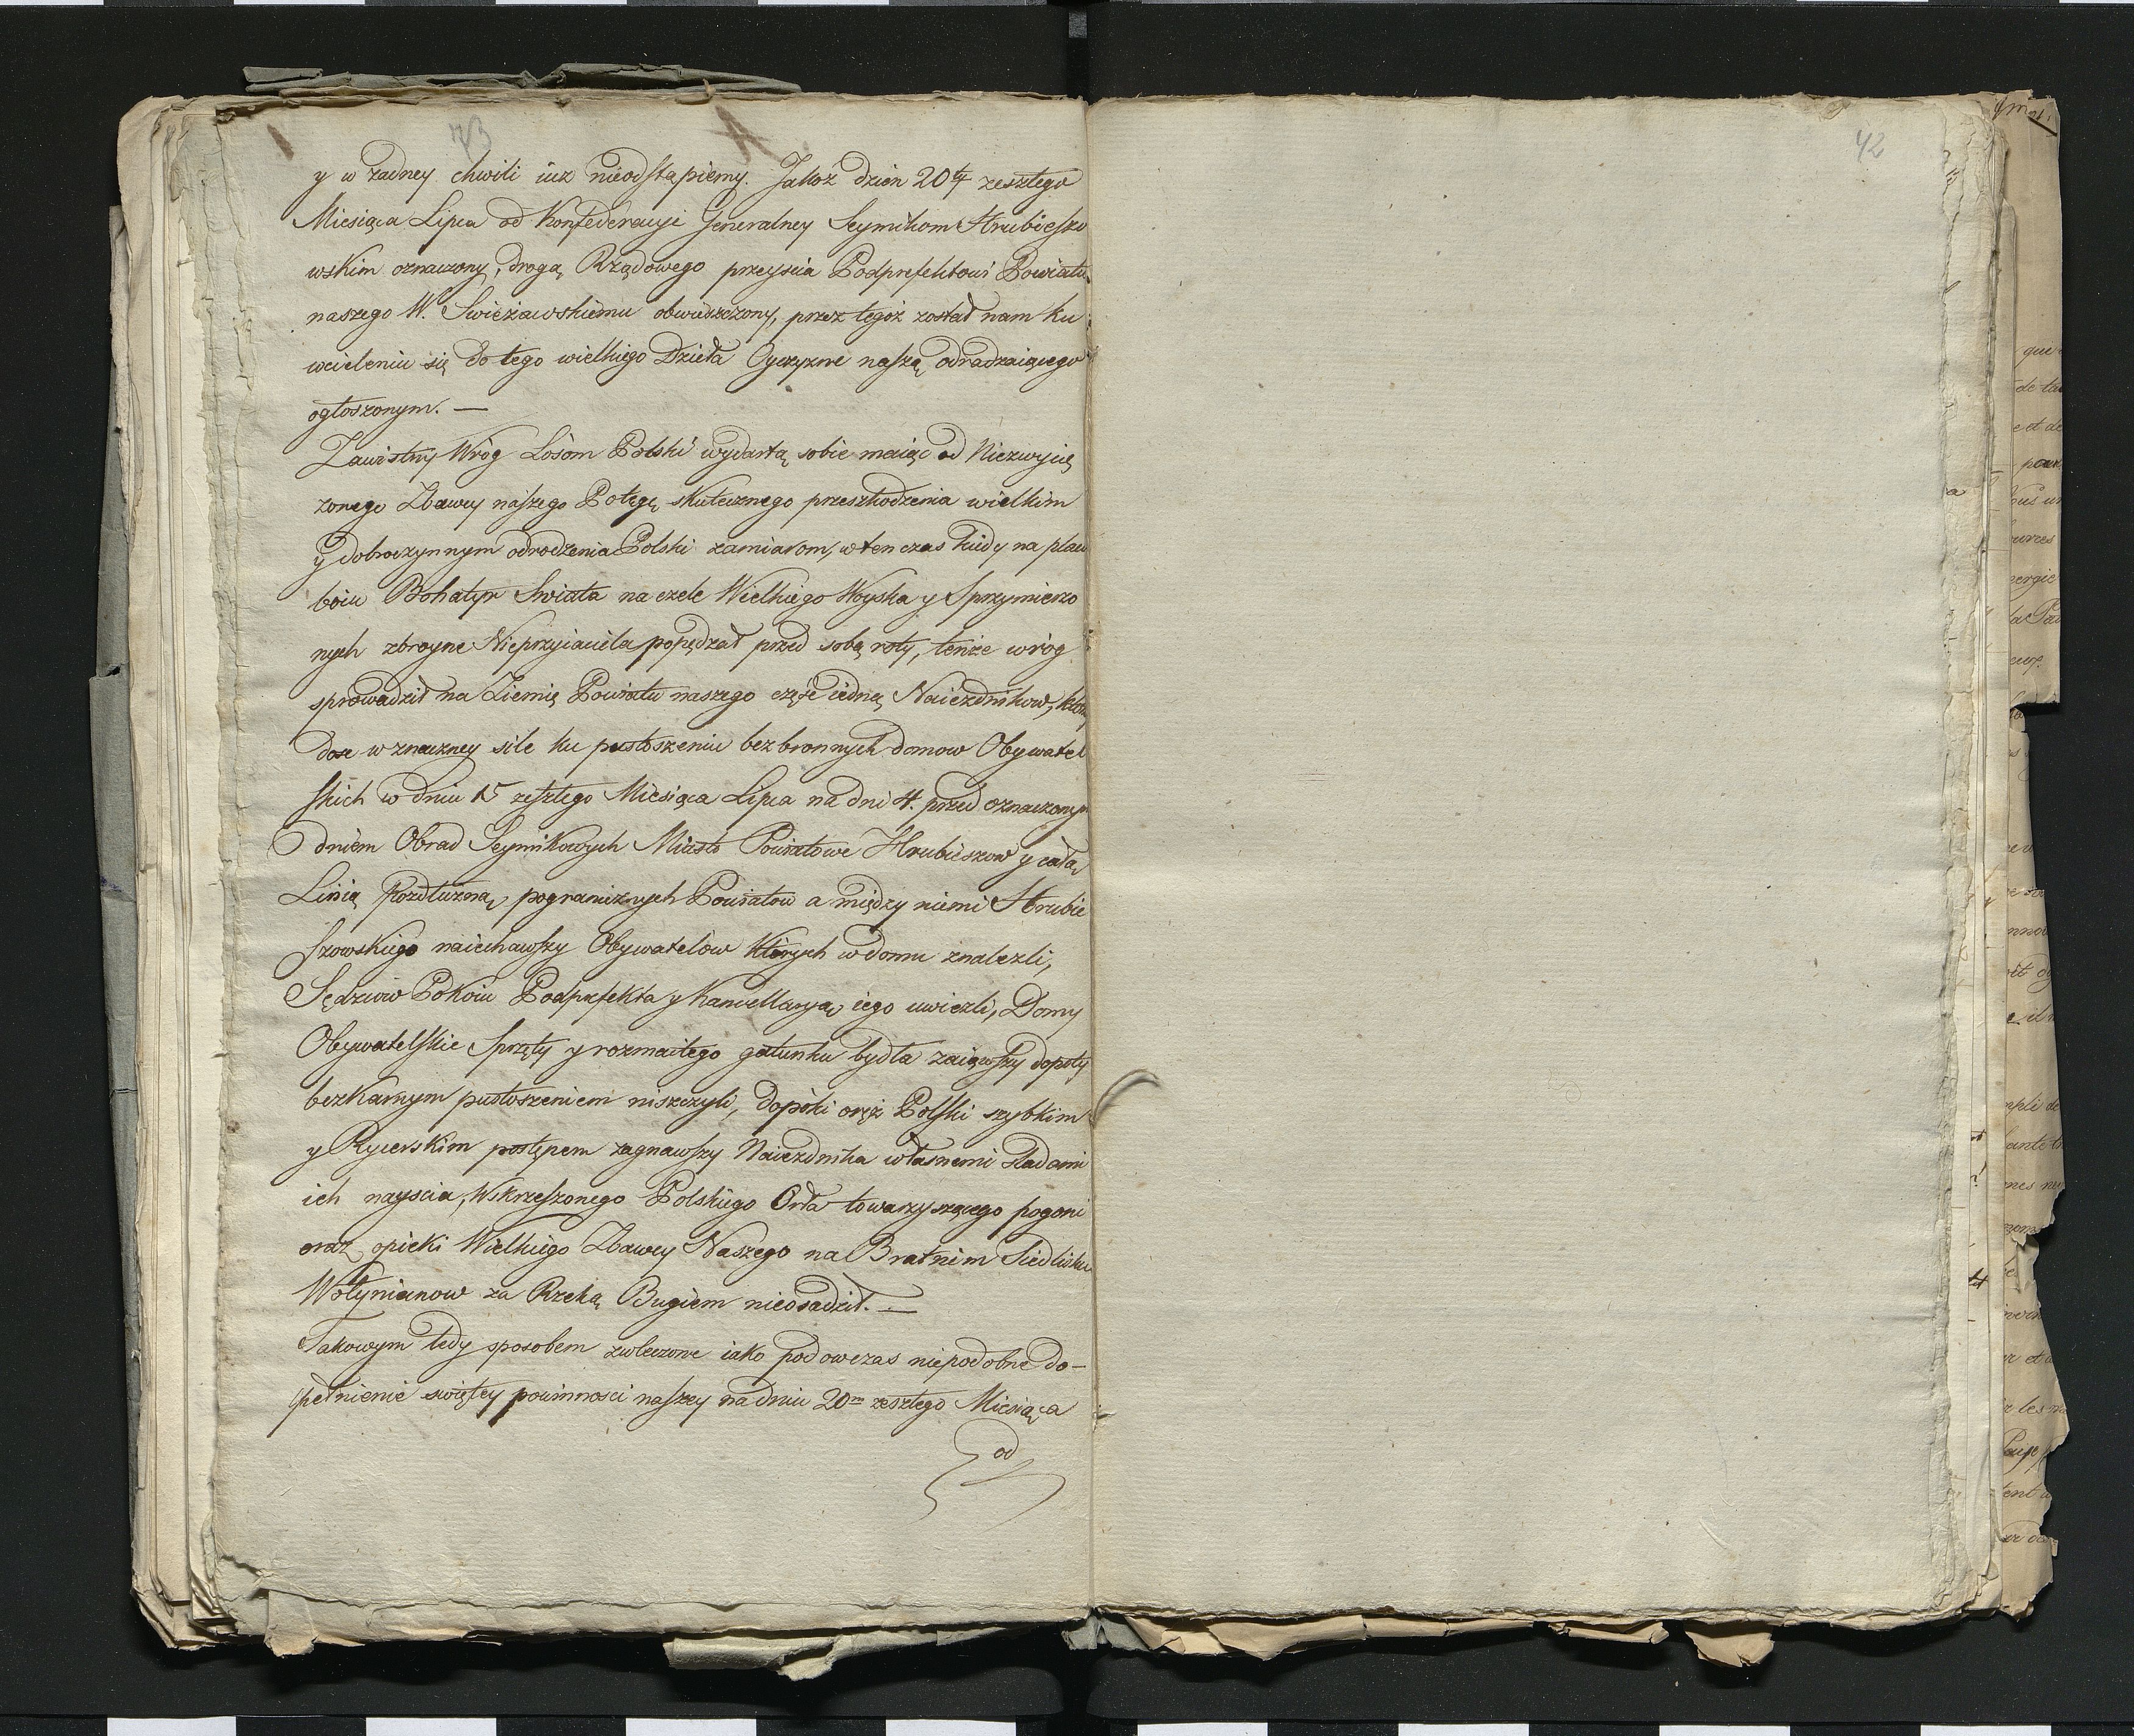 73
42
y w żadney chwili iuż nieodstąpiemy. Jakoż dzien 20ty zeszłego
Miesiąca Lipca od Konfederacyi Generalney Seymikom Hrubieszo
wskim oznaczony, drogą Rządowego przeyscia Podprefektowi Powiatu
naszego W. Swieżawskiemu obwieszczony, przez tegóż został nam ku
wcieleniu się do tego wielkiego Dzieła Oyczyznę naszą odradzaiącego
ogłoszonym. —
Zawistny Wróg Losom Polski wydartą sobie maiąc od Niezwycię
żonego Zbawcy naszego Potęgę skutecznego przeszkodzenia wielkim
y dobroczynnym odrodzenia Polski zamiarom, w ten czas kiedy na placu
boiu Bohatyr Swiata na czele Wielkiego Woyska y Sprzymierzo
nych zbroyne Nieprzyiaciela popędzał przed sobą roty, tenże wróg
sprowadził na Ziemię Powiatu naszego część iedną Naiezdnikow,
dosc w znaczney sile ku pustoszeniu bezbronnych domow Obywatel
skich w dniu 15 zeszłego Miesiąca Lipca na dni 4. przed oznaczonym
dniem Obrad Seymikowych Miasto Powiatowe Hrubieszow y całą
Linią podłużną, pogranicznych Powiatow a między niemi Hrubie
szowskiego naiechawszy Obywatelow których w domu znalezli,
Sędziow Pokoiu Podprefekta y Kancellaryą iego uwiezli, Domy
Obywatelskie Sprzęty y rozmaitego gatunku bydła zaiąwszy dopoty
bezkarnym pustoszeniem niszczyli, dopóki oręż Polski szybkim
y Rycerskim postępem zagnawszy Naiezdnika własnemi sladami
ich nayscia, Wskrzeszonego Polskiego Orła towarzyszącego pogoni
oraz opieki Wielkiego Zbawcy Naszego na Bratnim Siedlisku
Wołynianow za Rzeką Bugiem nieosadził. —
Takowym tedy sposobem zwleczone iako podowczas niepodobne do-
pełnienie swiętey powinnosci naszey na dniu 20m zeszłego Miesiąca
od